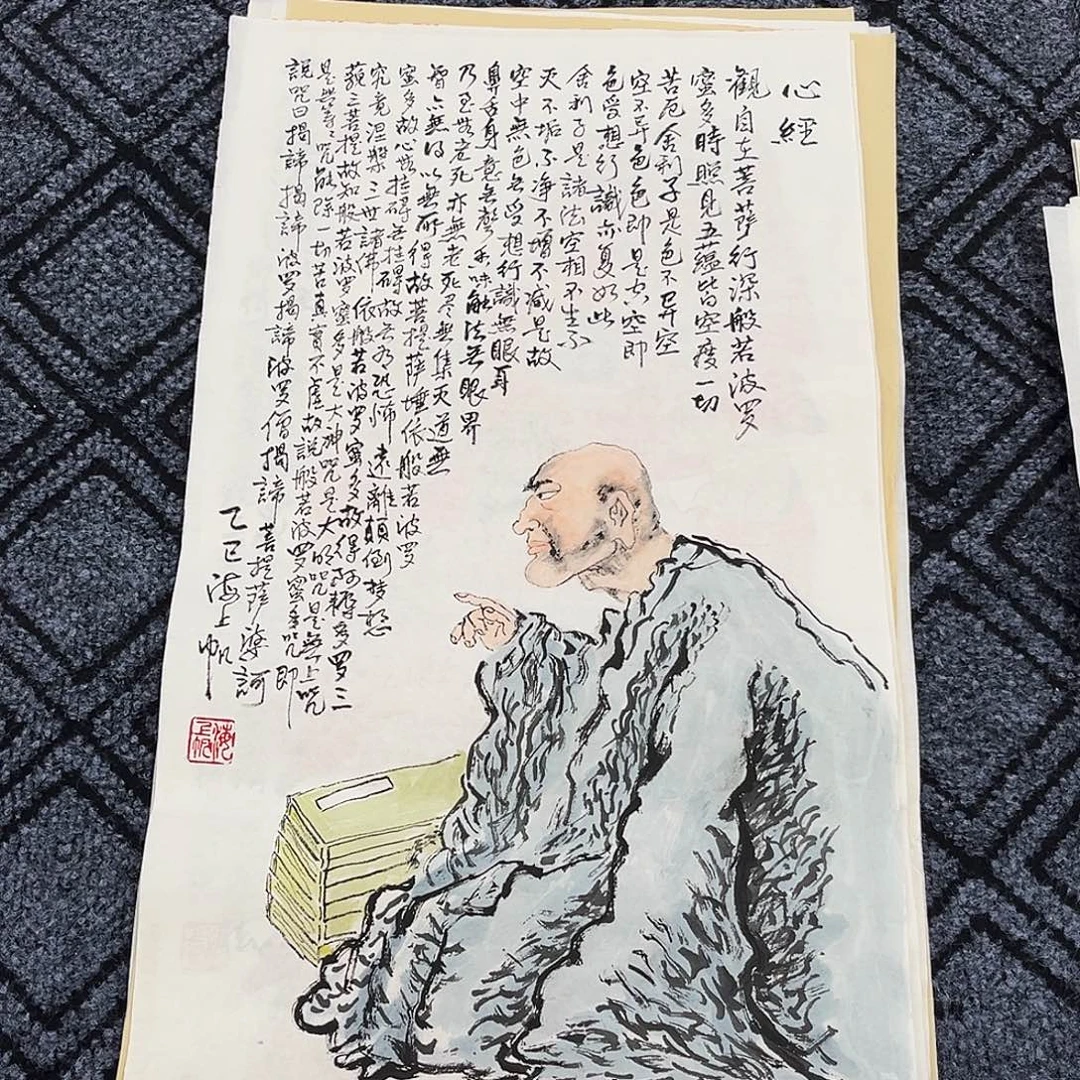 心經
觀自在菩萨行深般若波罗
蜜多時照見五蕴皆空度一切
苦厄舍利子是色不异空
空不异色色即是空空即
色受想行識亦复如此
舍利子是諸法空相不生不
灭不垢不净不增不减是故
空中無色无受想行識無眼耳
鼻舌身意无声香味触法无眼界
乃至无老死亦無老死尽無集灭道無
智亦無得以無所得故菩提萨埵依般若波罗
蜜多故心无挂碍无挂碍故无有恐怖遠離顛倒梦想
究竟涅槃三世諸佛依般若波罗蜜多故得阿耨多罗三
藐三菩提故知般若波罗蜜多是大神咒是大明咒是無上咒
是無等等咒能除一切苦真實不虚故説般若波罗蜜多咒即
説咒曰揭諦揭諦波罗揭諦波罗僧揭諦菩提萨婆訶
乙巳海上帆
海上帆